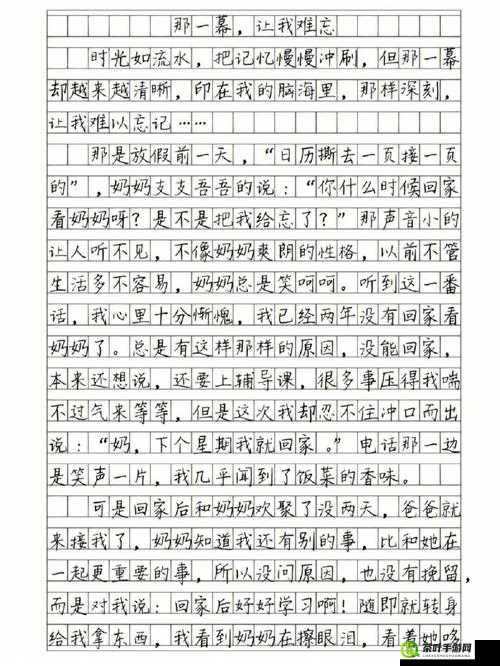 那一幕，让我难忘
时光如流水，把记忆慢慢冲刷，但那一幕
却越来越清晰，印在我的脑海里，那样深刻，
让我难以忘记……
那是放假前一天，“日历撕去一页接一页
的”，妈妈支支吾吾的说：“你什么时候回家
看妈妈呀？是不是把我给忘了？”那声音小的
让人听不见，不像妈妈爽朗的性格，以前不管
生活多不容易，妈妈总是笑呵呵。听到这一番
话，我心里十分惭愧，我已经两年没有回家看
妈妈了。总是有这样那样的原因，没能回家，
本来还想说，还要上辅导课，很多事压得我喘
不过气来等等，但是这次我却忍不住冲口而出
说：“妈，下个星期我就回家。”电话那一边
是笑声一片，我几乎闻到了饭菜的香味。
可是回家后和妈妈欢聚了没两天，爸爸就
来接我了，妈妈知道我还有别的事，比和她在
一起更重要的事，所以没问原因，也没有挽留，
而是对我说：回家后好好学习啊！随即就转身
给我拿东西，我看到妈妈在擦眼泪，看着她哆
茶叶手游网